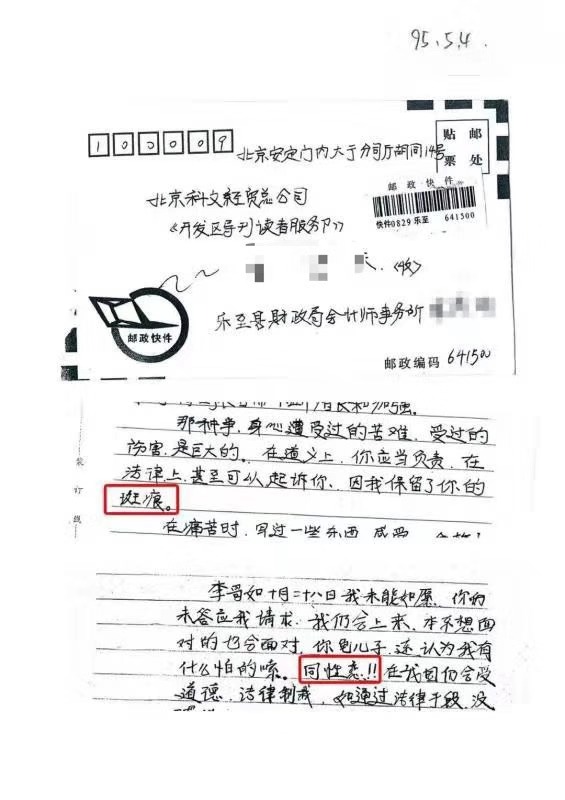 95.5.4.
贴 邮
票 处
100009
北京安定门内大于分司厅胡同14号
邮政快件
快件0829 乐至 641500
北京科文经贸总公司
《开发区导刊读者服务户》
(收)
邮政快件
乐至县财政局会计师事务所
邮政编码 641500
装订线
和加强。
那种事,身心遭受过的苦难,受过的
伤害,是巨大的。在道义上,你应当负责,在
法律上,甚至可以起诉你,因我保留了你的
斑痕。
在痛苦时,写过一些东西,感受
李哥如十月二十八日我未能如愿,你却
未答应我请求,我们会上来,本不想面
对的也会面对,你龟儿子,还认为我有
什么怕的嗦。同性恋!!在我国仍会受
道德、法律制裁,如通过法律手段,没